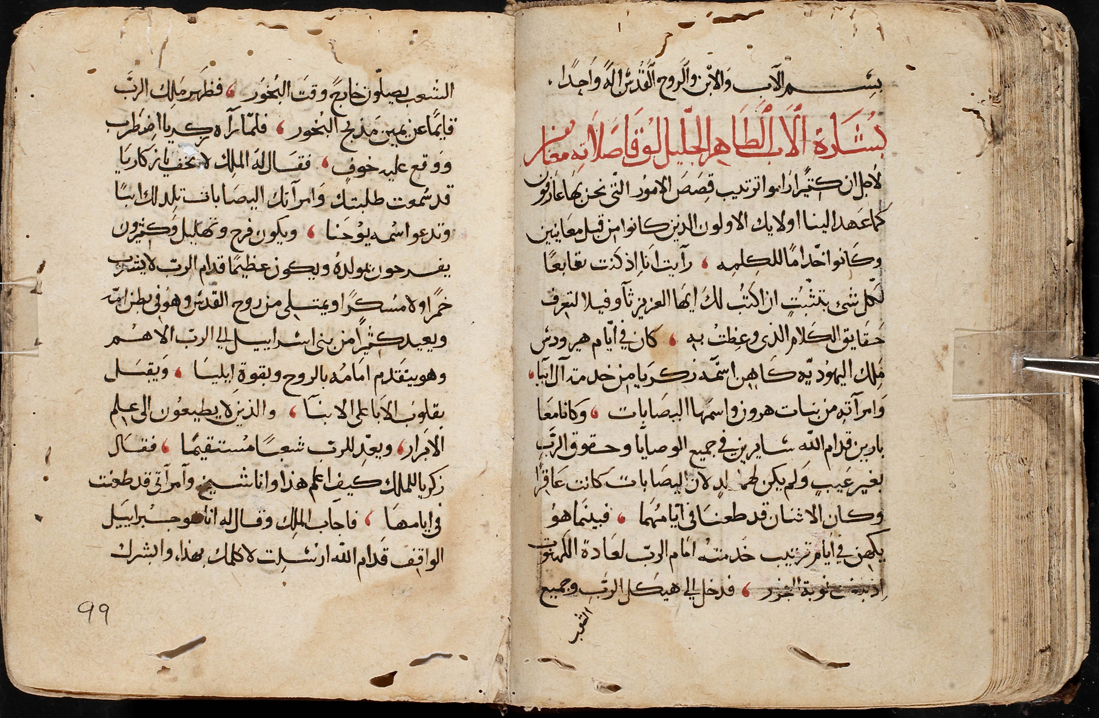 بسم الاب والابن والروح القدس الاه واحدا .
بشارة الاب الطاهر الجليل لوقا صلاته معنا امين
لاجل ان كثيرا راموا ترتيب قصص الامور التى نحن بها عارفون
كما عهد الينا اولايك الاولون الذين كانوا من قبل معاينين
وكانوا خداما للكلمه ، رايت انا اذ كنت تابعا
لكل شى بتثبت ان اكتب لك ايها العزيز ثاوفيلا لتعرف
حقايق الكلام الذى وعظت به ، كان فى ايام هرودس
ملك اليهوديه كاهن اسمه زكريا من خدمة آل ابيا،
وامرآته من بنات هرون واسمها اليصابات ، وكانا معا
بارين قدام الله سايرين فى جميع الوصايا وحقوق الرب
بغير عيب ولم يكن لهما ولد لان اليصابات كانت عاقرا
وكان الاثنان قد طعنا فى ايامهما ، فبينما هو
يكهن فى ايام ترتيب خدمته امام الرب لعادة الكهنوت
اذ بلغت نوبة البخور ، فدخل الى هيكل الرب وجميع
الشعب
الشعب يصلون خارج وقت البخور ، فظهر ملك الرب
قايما عن يمين مذبح البخور ، فلما رآه زكريا اضطرب
ووقع عليه خوف ، فقال له الملك لا تخف يا زكاريا
قد سمعت طلبتك وامرآتك اليصابات تلد لك ابنا
وتدعو اسمه يوحنا ، ويكون فرح وتهليل وكثيرون
يفرحون بمولده ويكون عظيما قدام الرب لا يشرب
خمرا ولا مسكرا ويمتلى من روح القدس وهو فى بطن امه
ويعيد كثيرا من بنى اسراييل الى الرب الاههم
وهو يتقدم امامه بالروح وبقوة ايليا ، ويقبل
بقلوب الابا على الابنا ، والذين لا يطيعون الى علم
الابرار، ويعد للرب شعبا مستقيما ، فقال
زكريا للملك كيف اعلم هذا وانا شيخ وآمرآتى قد طعنت
فى ايامها ، فاجاب الملك وقال له انا هو جبراييل
الواقف قدام الله ارسلت لاكلمك بهذا، وابشرك
99